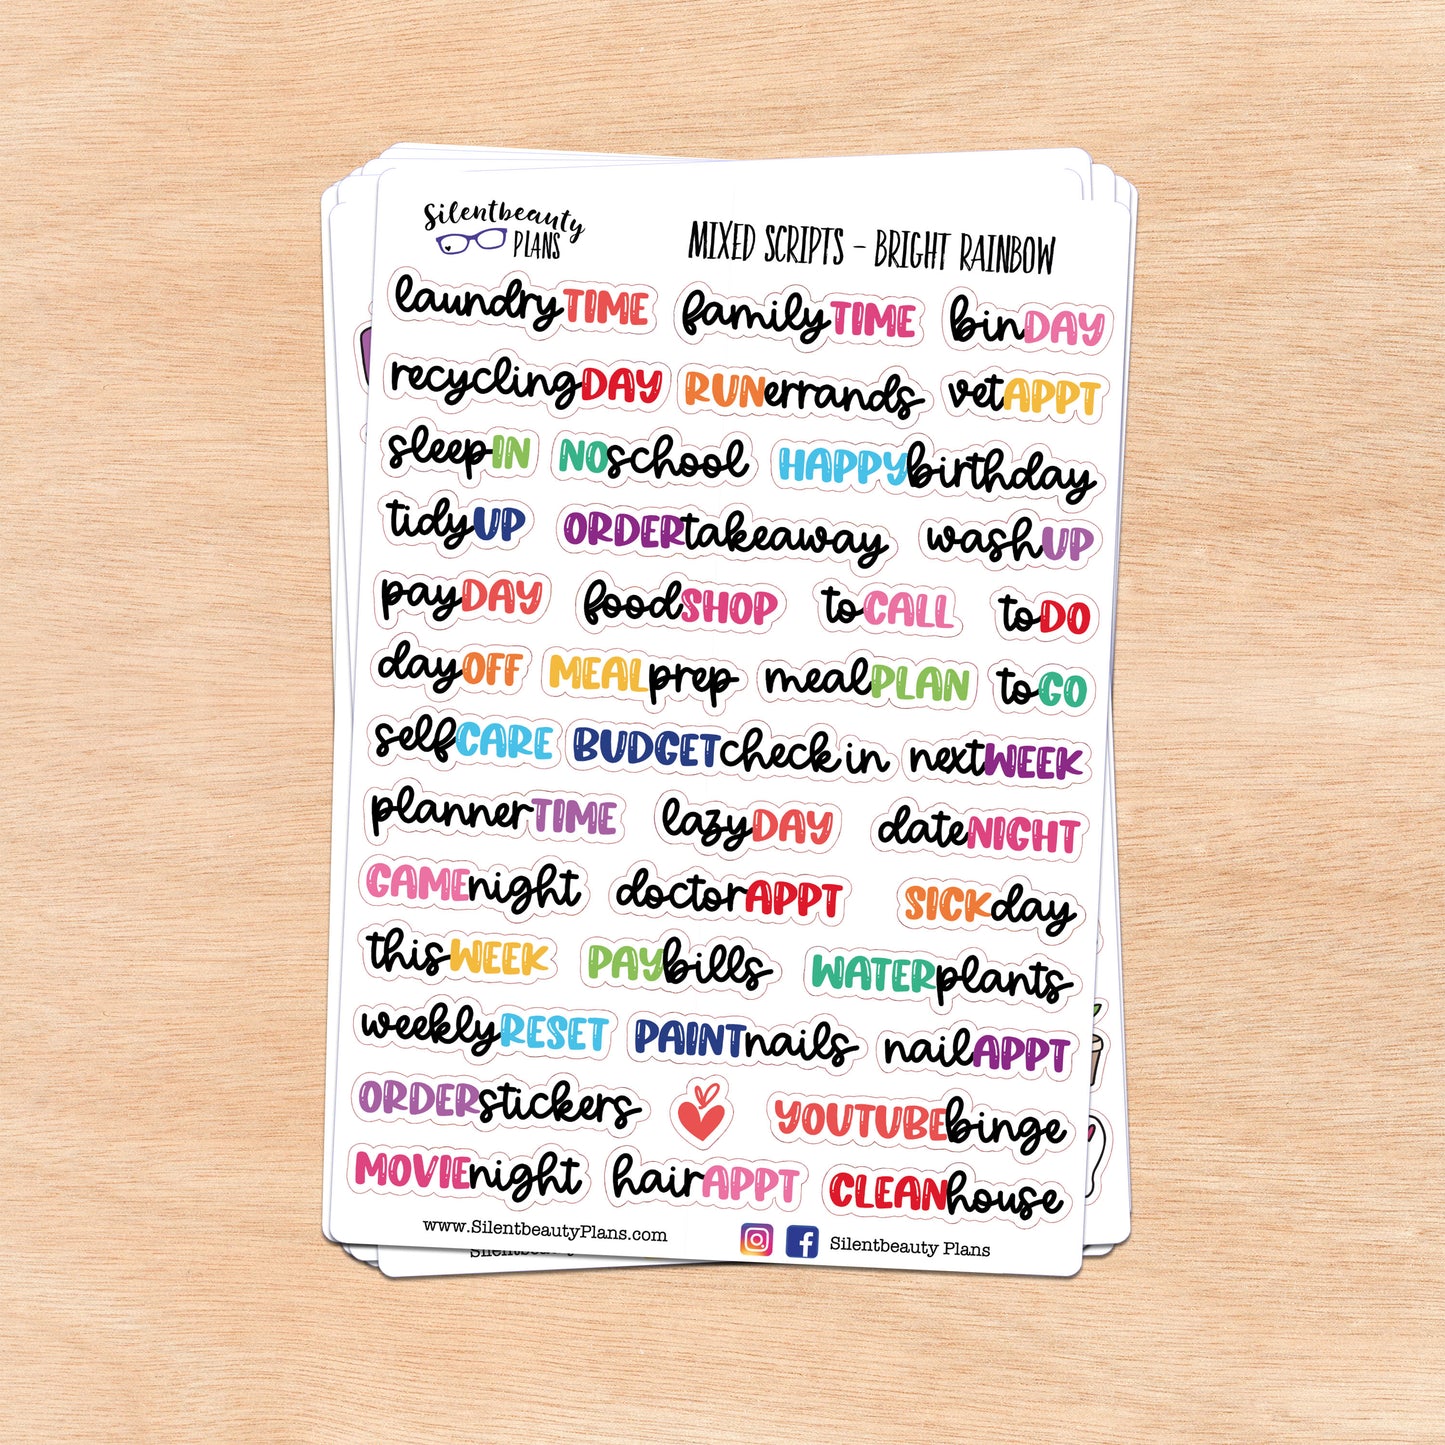 Silentbeauty
PLANS
MIXED SCRIPTS - BRIGHT RAINBOW
laundryTIME familyTIME binDAY
recyclingDAY RUNerrands vetAPPT
sleepIN NOschool HAPPYbirthday
tidyUP ORDERtakeaway washUP
payDAY foodSHOP toCALL toDO
dayOFF MEALprep mealPLAN toGO
selfCARE BUDGETcheck in nextWEEK
plannerTIME lazyDAY dateNIGHT
GAMEnight doctorAPPT SICKday
thisWEEK PAYbills WATERplants
weeklyRESET PAINTnails nailAPPT
ORDERstickers YOUTUBEbinge
MOVIEnight hairAPPT CLEANhouse
www.SilentbeautyPlans.com Silentbeauty Plans